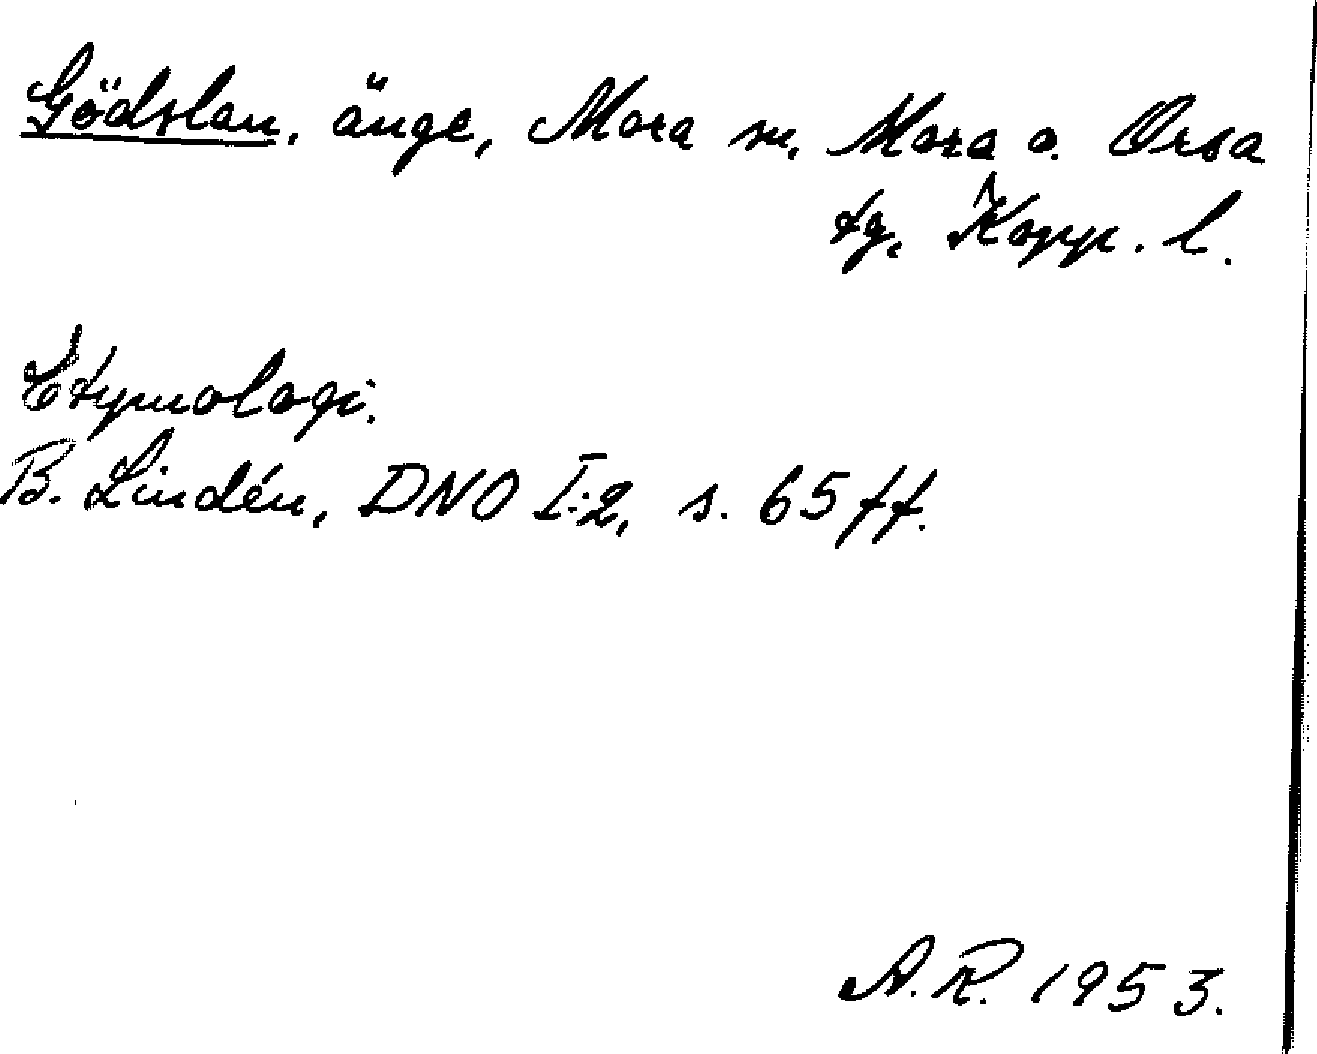 Gödslan, änge, Mora sn, Mora o. Orsa
tg, Kopp. l.
Etymologi.
B. Lindén, DNO I:2, s. 65 ff.
A.R. 1953.